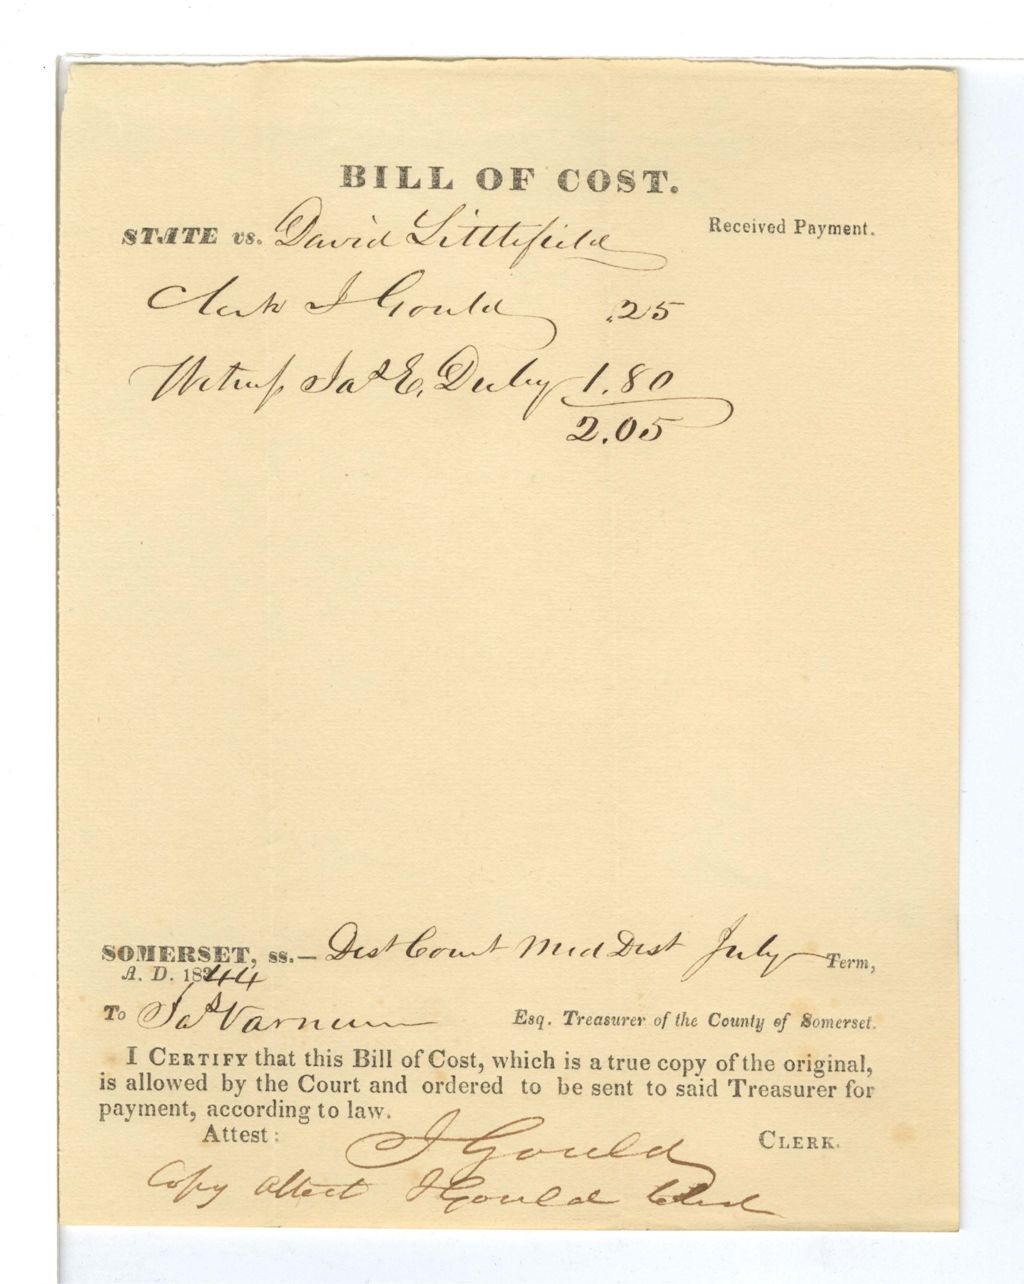 BILL OF COST.
STATE vs. David Littlefield Received Payment.
Clerk J Gould .25
Witness Jas E. Derby 1.80
2.05
SOMERSET, ss.— Dist Court Mid Dist July Term,
A. D. 1844
To Jas Varnum Esq. Treasurer of the County of Somerset.
I CERTIFY that this Bill of Cost, which is a true copy of the original,
is allowed by the Court and ordered to be sent to said Treasurer for
payment, according to law.
Attest: J Gould CLERK.
Copy Attest J Gould Clerk